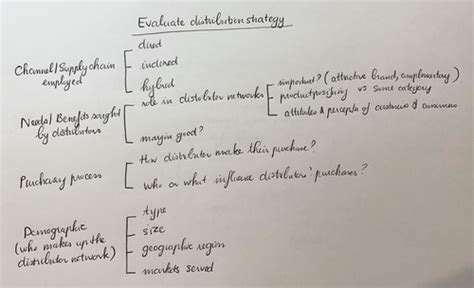 Evaluate distribution strategy
Channel/Supply chain employed
direct
indirect
hybrid
Needs/Benefits sought by distributors
role in distributor networks
important? (attractive brand, complimentary)
product positioning vs same category
attitudes & percepts of customers & consumers
margin good?
Purchasing process
How distributor make their purchase?
who or what influence distributors' purchases?
Demographic
(who makes up the distributor network)
type
size
geographic region
markets served